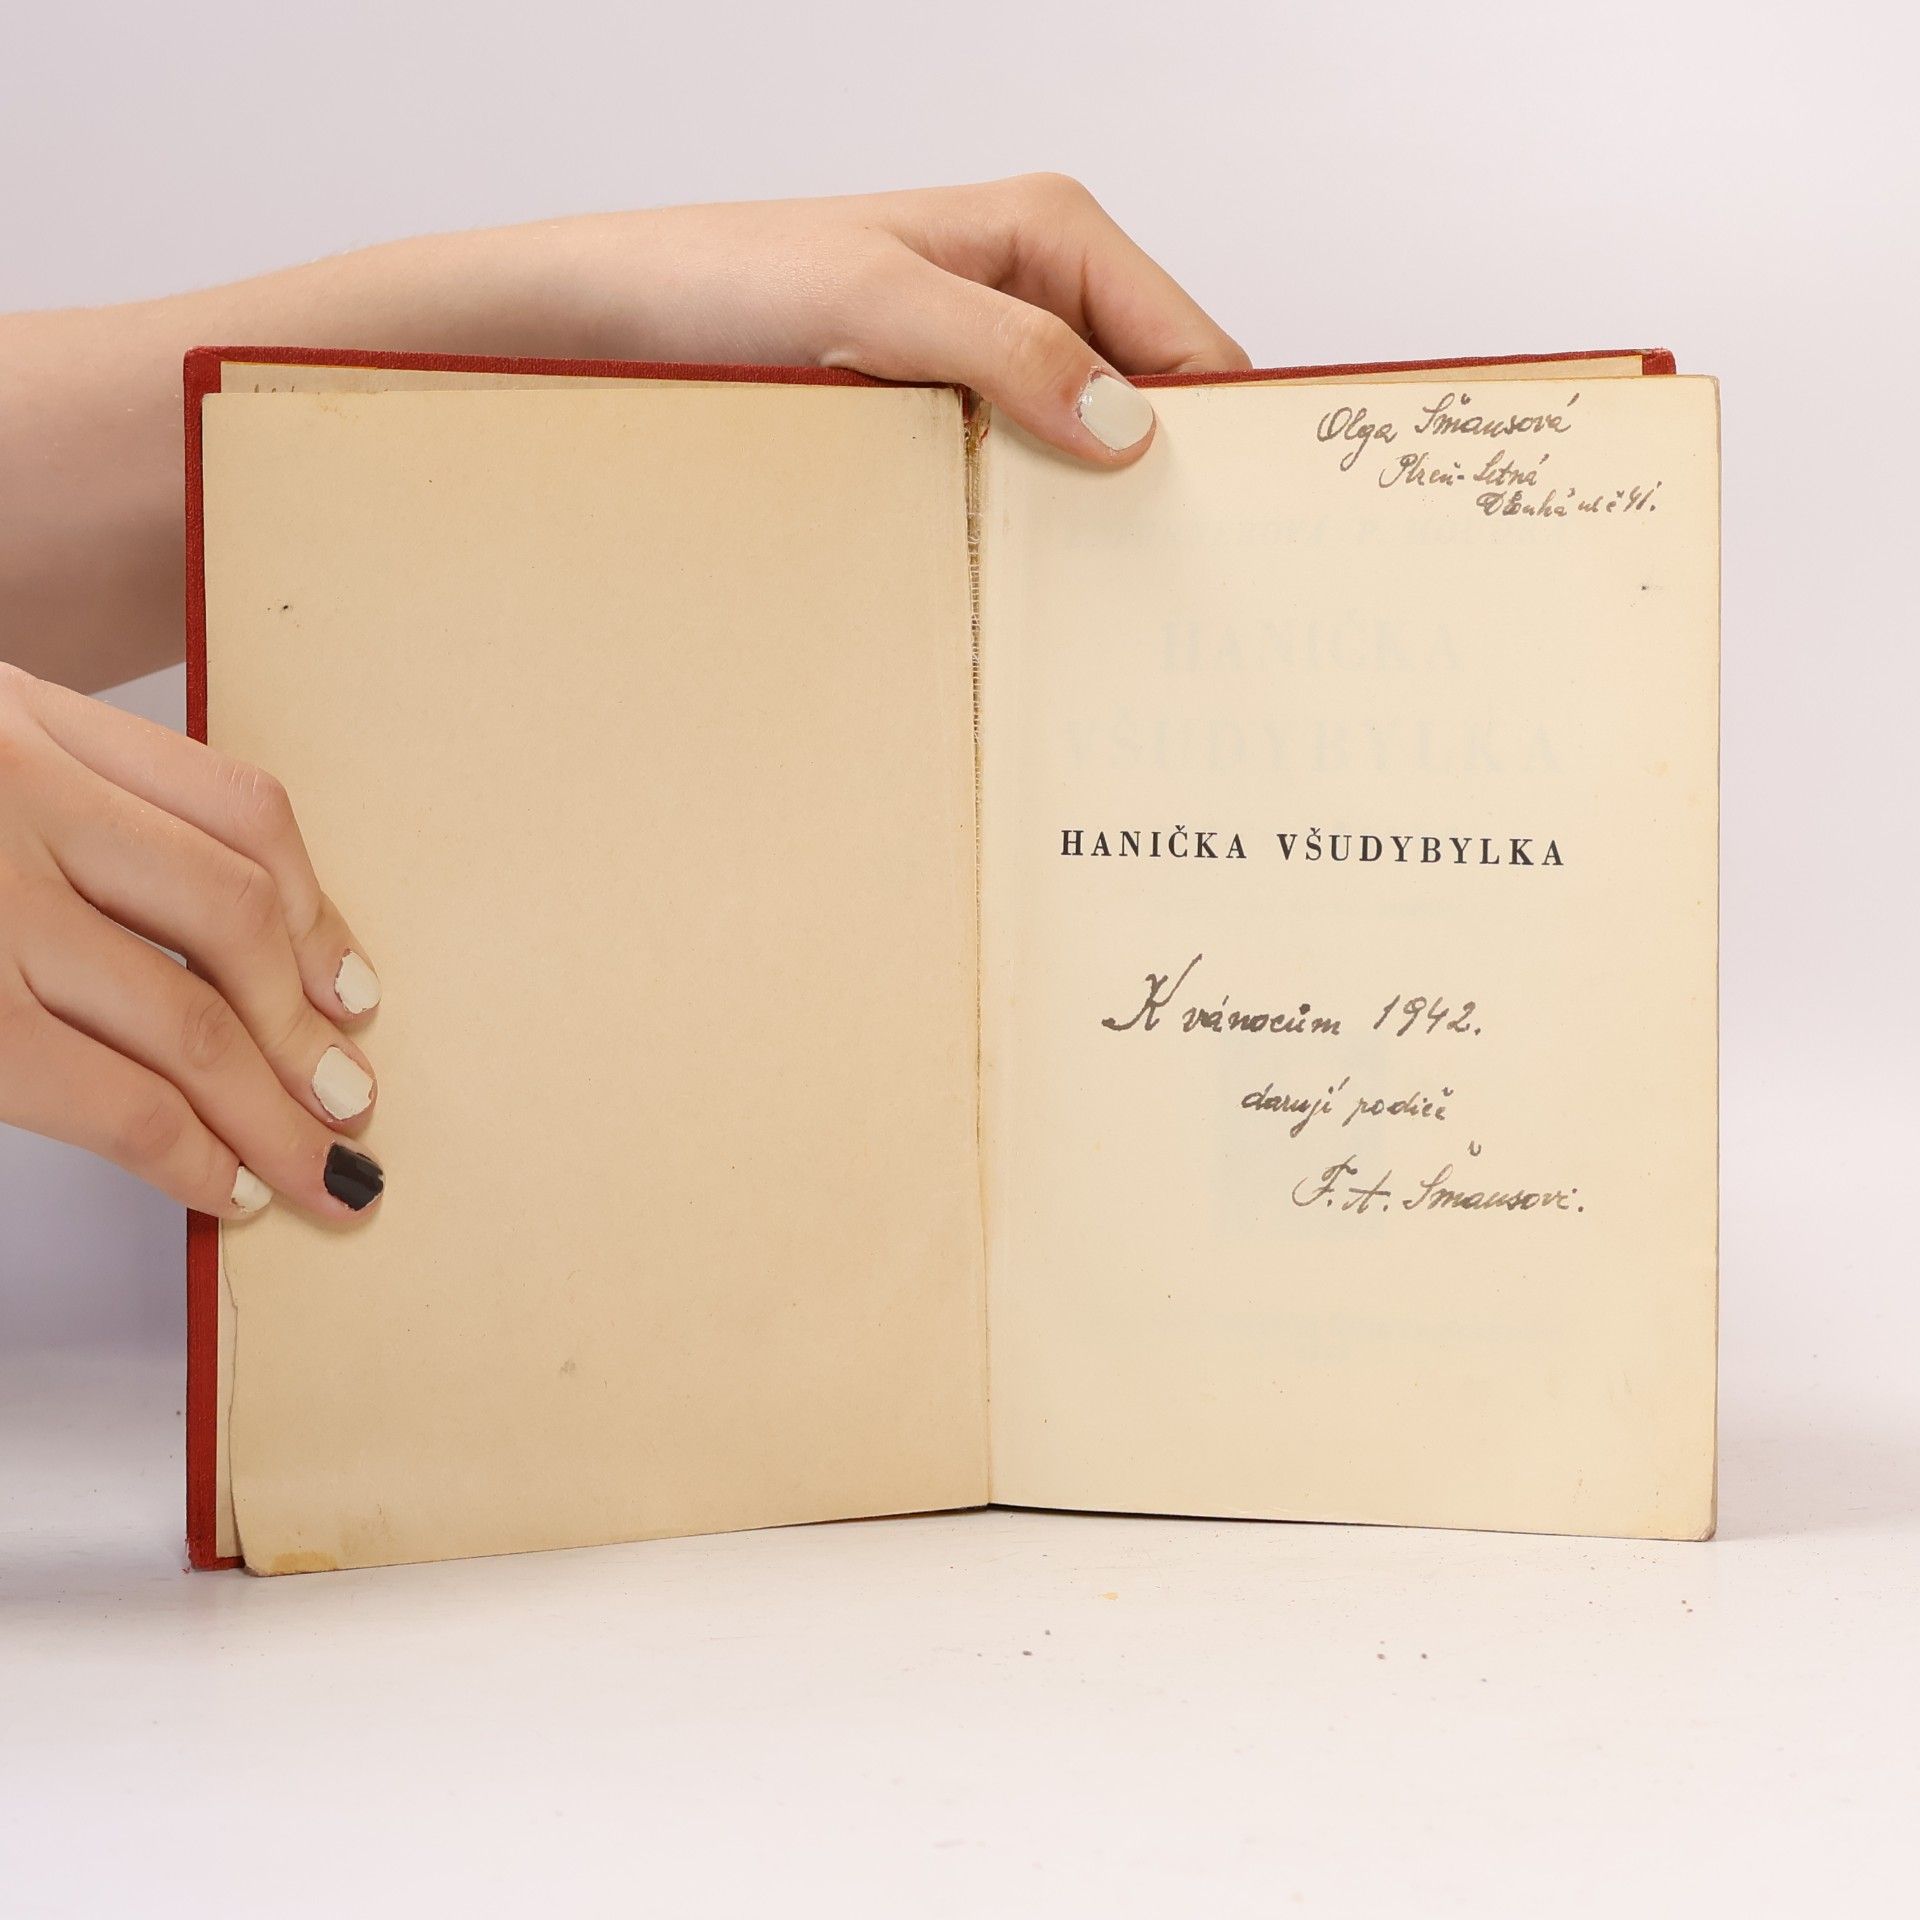 Olga Šmausová
Plzeň-Letná
Dlouhá ul č 41.
HANIČKA
VŠUDYBYLKA
HANIČKA VŠUDYBYLKA
K vánocům 1942.
darují rodiče
F. A. Šmausovi.